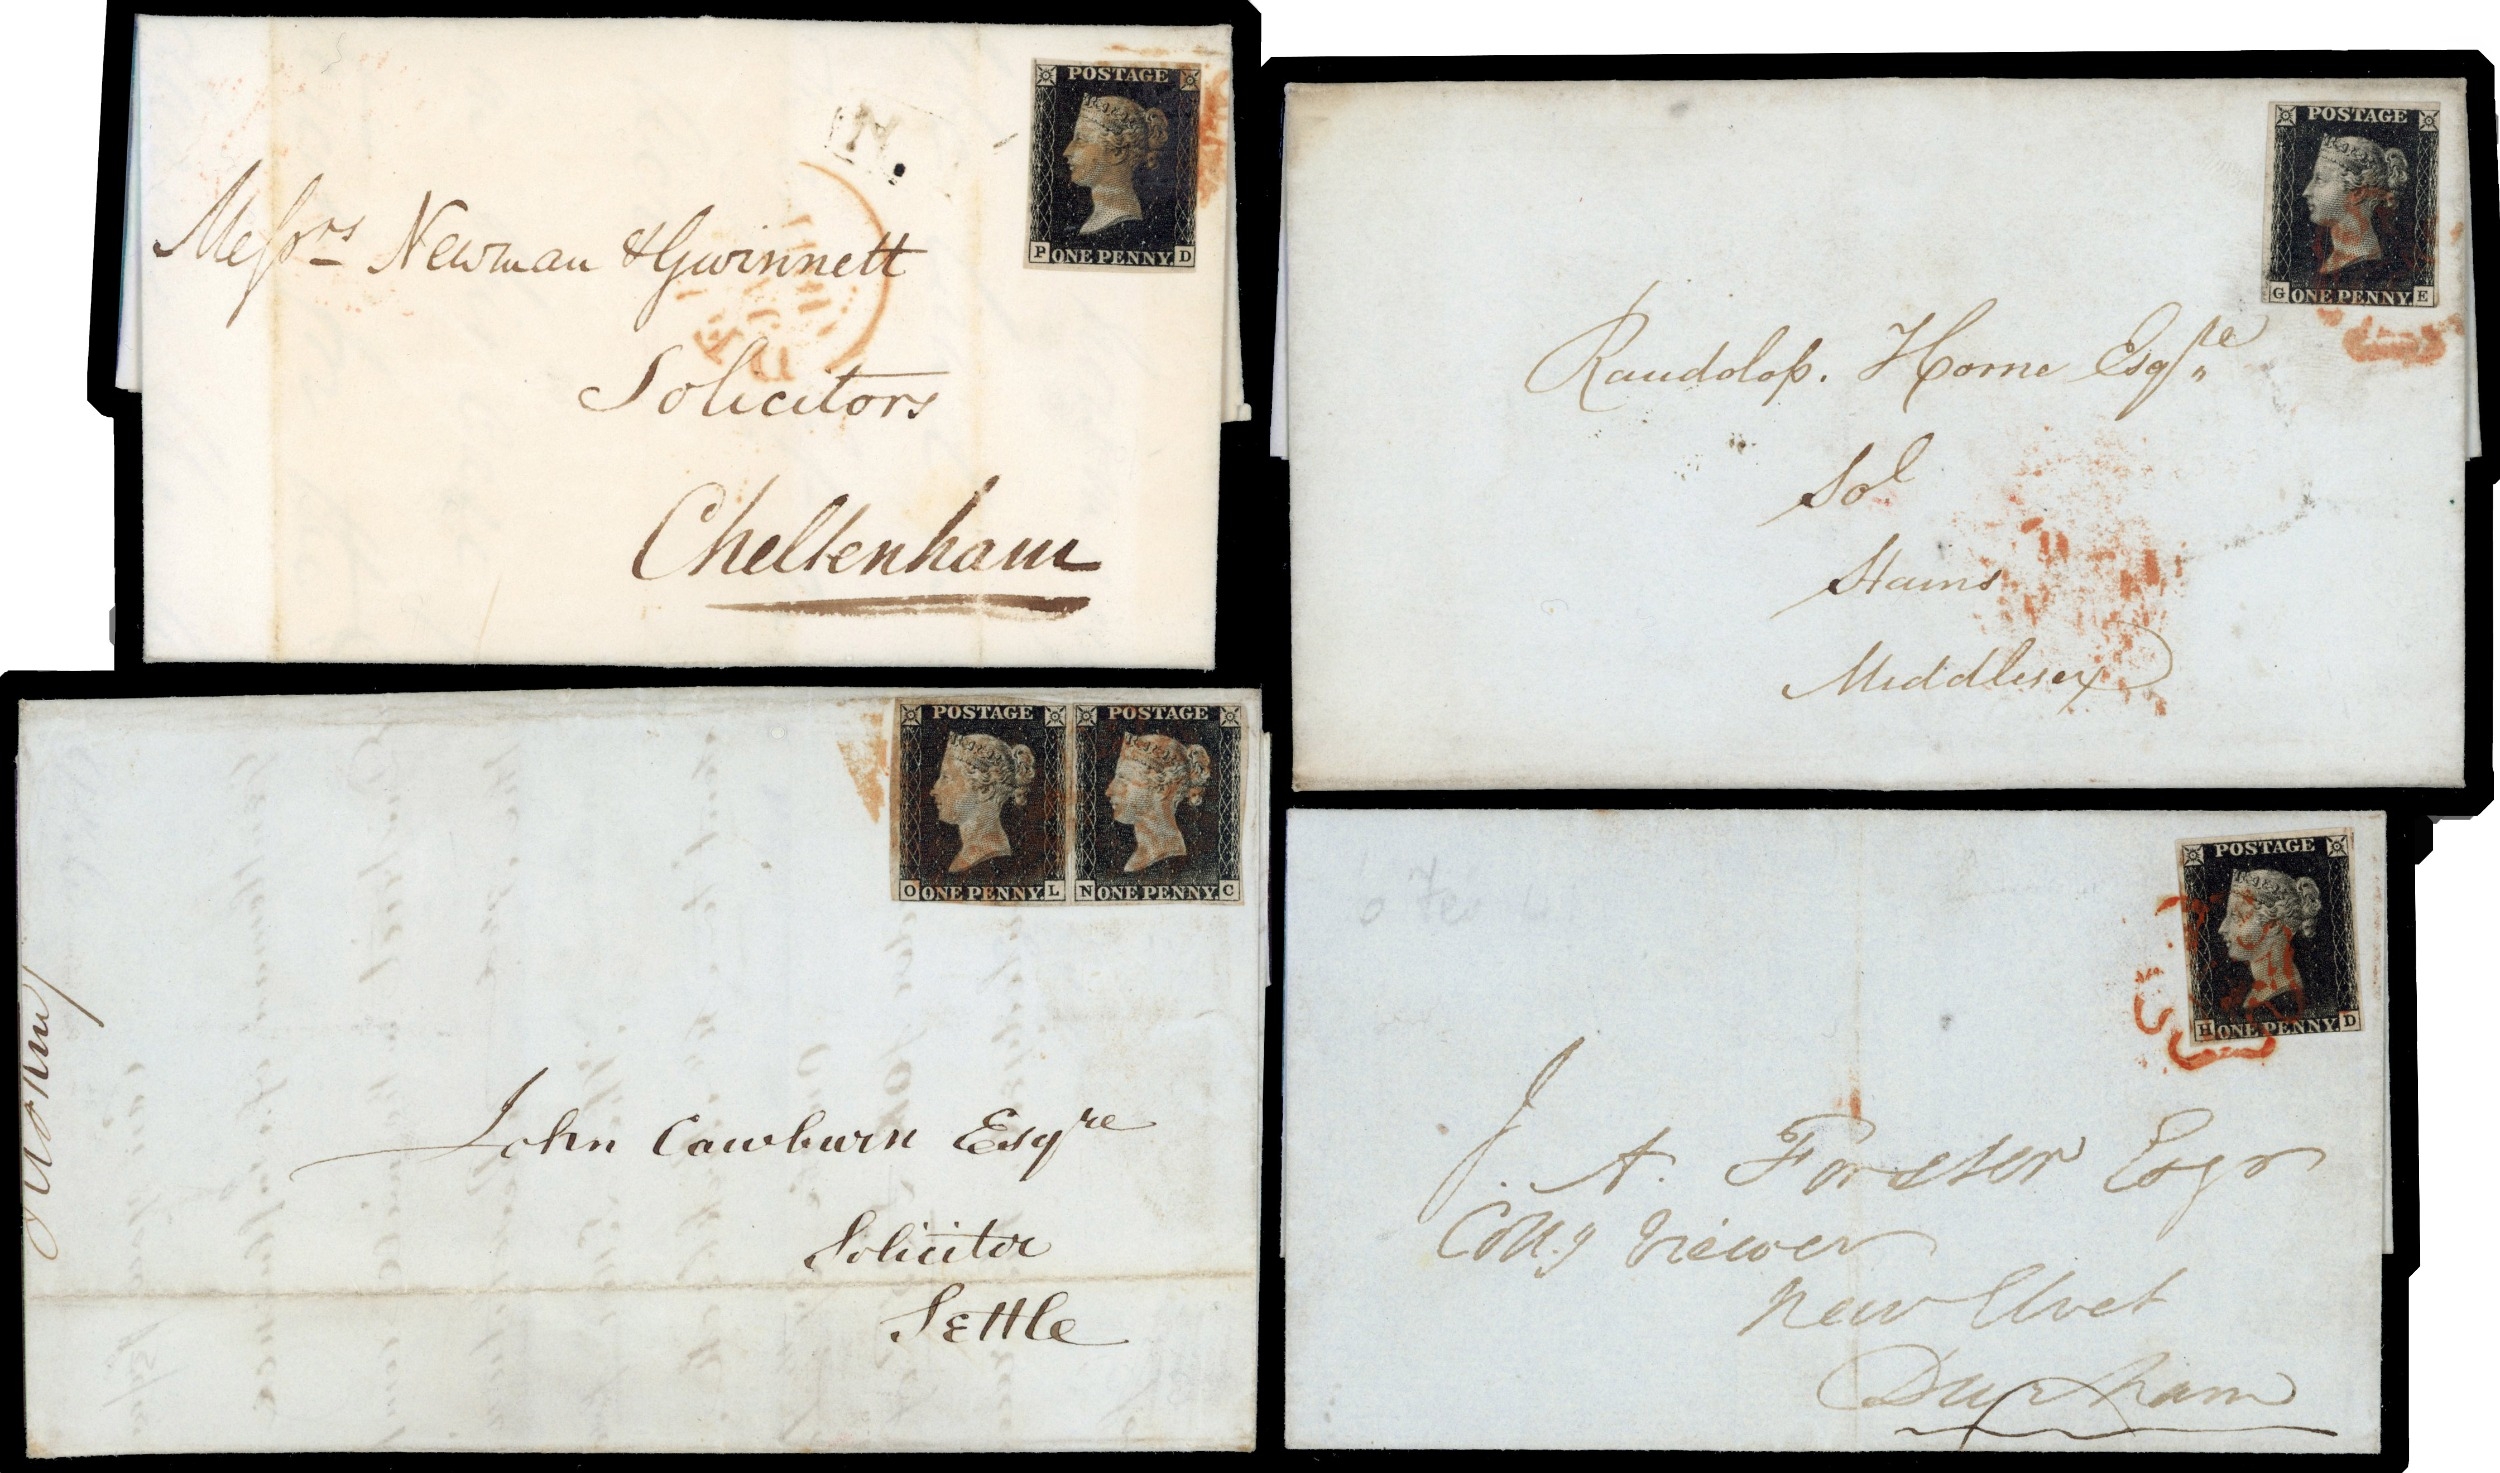 POSTAGE
P ONE PENNY. D
N.
Messrs Newman & Gwinnett
Solicitors
Cheltenham
POSTAGE
G ONE PENNY. E
Randolp. Horne Esqre
Sol
Stains
Middlesex
POSTAGE POSTAGE
O ONE PENNY. L N ONE PENNY. C
John Cowburn Esqre
Solicitor
Settle
POSTAGE
H ONE PENNY. D
J. A. Forster Esqr
Colly Viewer
New Elvet
Durham